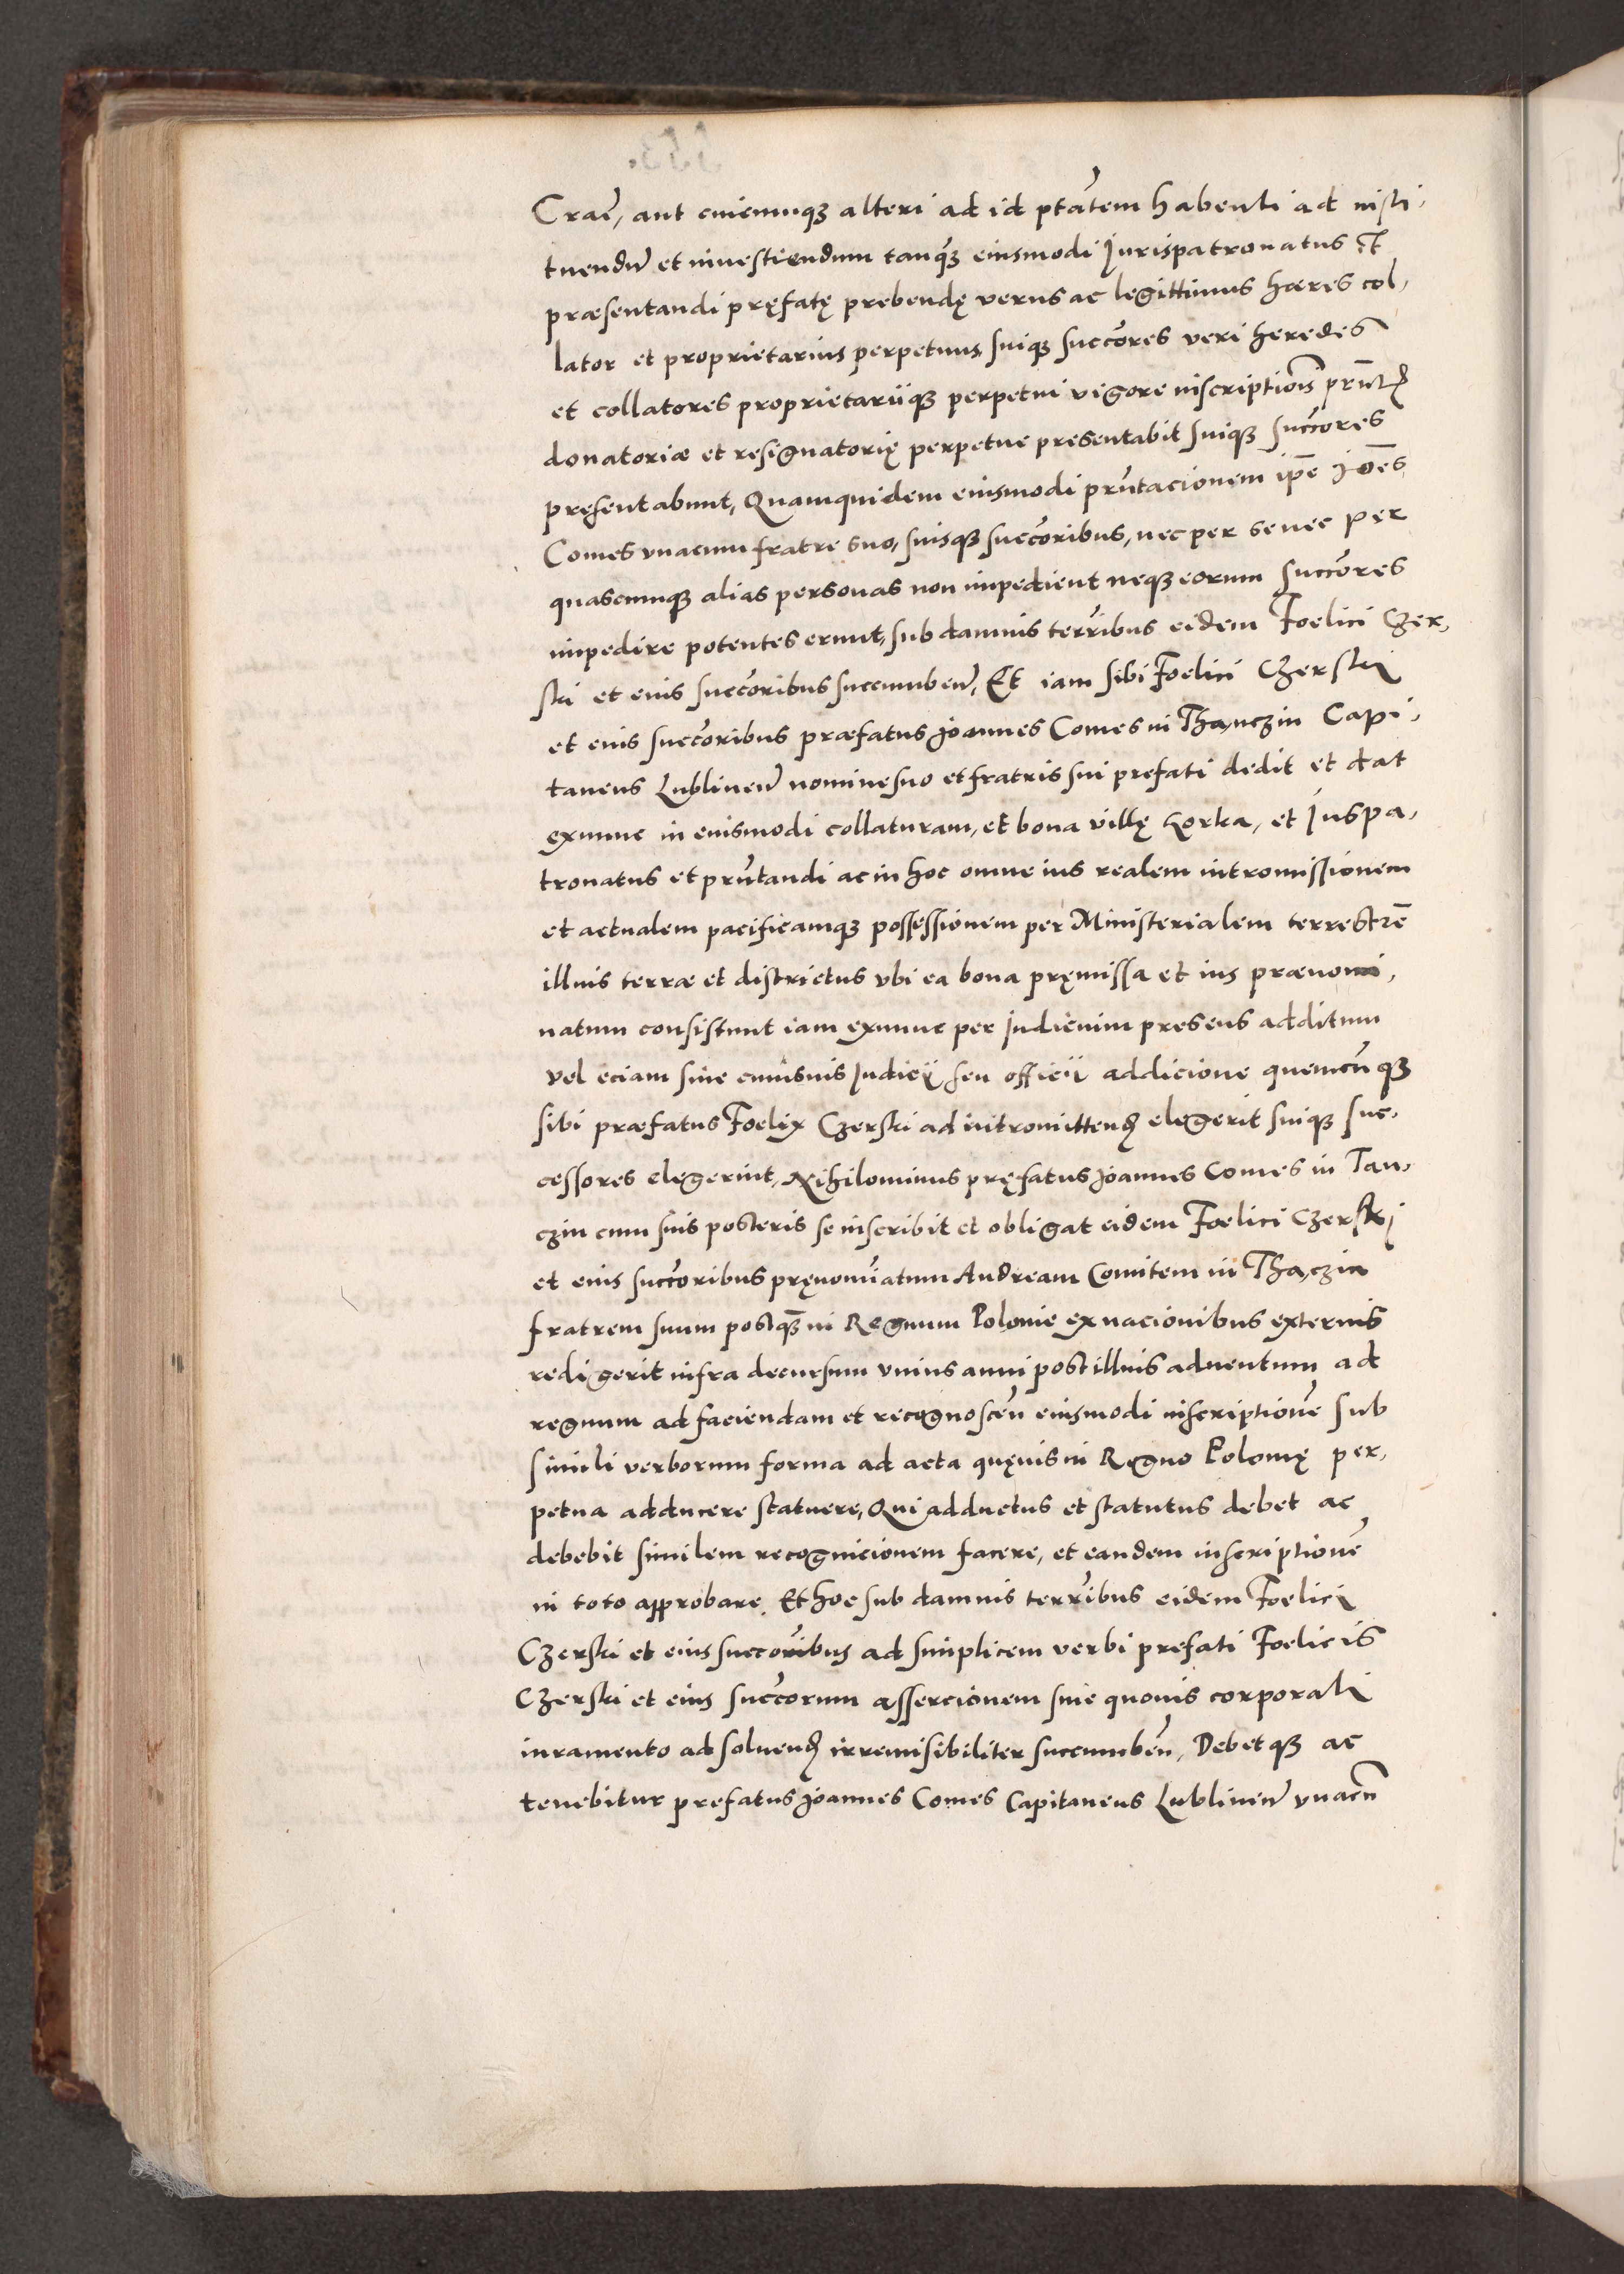 Craēn, aut cuicumqꝫ alteri ad id ptātem habenti ad insti,
tuendū et inuestiendum tanqꝫ eiusmodi Jurispatronatus et
præsentandi pręfatę prebendę verus ac legittimus hæres col,
lator et proprietarius perpetuus suiqꝫ succores veri heredes
et collatores proprietariiqꝫ perpetui vigore inscriptiōis prn̄tis
donatoriæ et resignatorię perpetue presentabit suiqꝫ succores
pręsentabunt, Quamquidem eiusmodi prn̄tacionem ip̄e Joēs
Comes vnacum fratre suo, suisqꝫ succoribus, nec per se nec per
quascumqꝫ alias personas non impedient neqꝫ eorum succores
impedire potentes erunt, sub damnis terribus eidem Foelici Czer,
ski et eius succoribus succumben̄, Et iam sibi Foelici Czerski
et eius succoribus præfatus Joannes Comes in Thanczin Capi,
taneus Lublinen̄ nomine suo et fratris sui prefati dedit et dat
exnunc in eiusmodi collaturam, et bona villę Lorka, et Juspa,
tronatus et prn̄tandi ac in hoc omne ius realem intromissionem
et actualem pacificamqꝫ possessionem per Ministerialem terrestrē
illius terræ et districtus vbi ea bona pręmissa et ius prænomi,
natum consistunt iam exnunc per Judicium presens additum
vel eciam sine cuiusuis Judicij seu officii addicione quemcūqꝫ
sibi præfatus Foelix Czerski ad intromittendꝫ elegerit suiqꝫ suc,
cessores elegerint, Nihilominus pręfatus Joannes Comes in Tan,
czin cum suis posteris se inscribit et obligat eidem Foelici Czerski
et eius succoribus pręnomīatum Andream Comitem in Thaczin
fratrem suum postqꝫ in Regnum Polonie ex nacionibus externis
redigerit infra decursum vnius anni post illius aduentum ad
regnum ad faciendam et recognoscen̄ eiusmodi inscriptionē sub
simili verborum forma ad acta quęuis in Regno Polonię per,
petua adducere statuere, Qui adductus et statutus debet ac
debebit similem recognicionem facere, et eandem inscriptionē
in toto approbare, Et hoc sub damnis terribus eidem Foelici
Czerski et eius succoribus ad simplicem verbi prefati Foelicis
Czerski et eius succorum assercionem sine quouis corporali
iuramento ad soluendꝫ irremisibiliter succumben̄, Debetqꝫ ac
tenebitur prefatus Joannes Comes Capitaneus Lublinen̄ vnacū